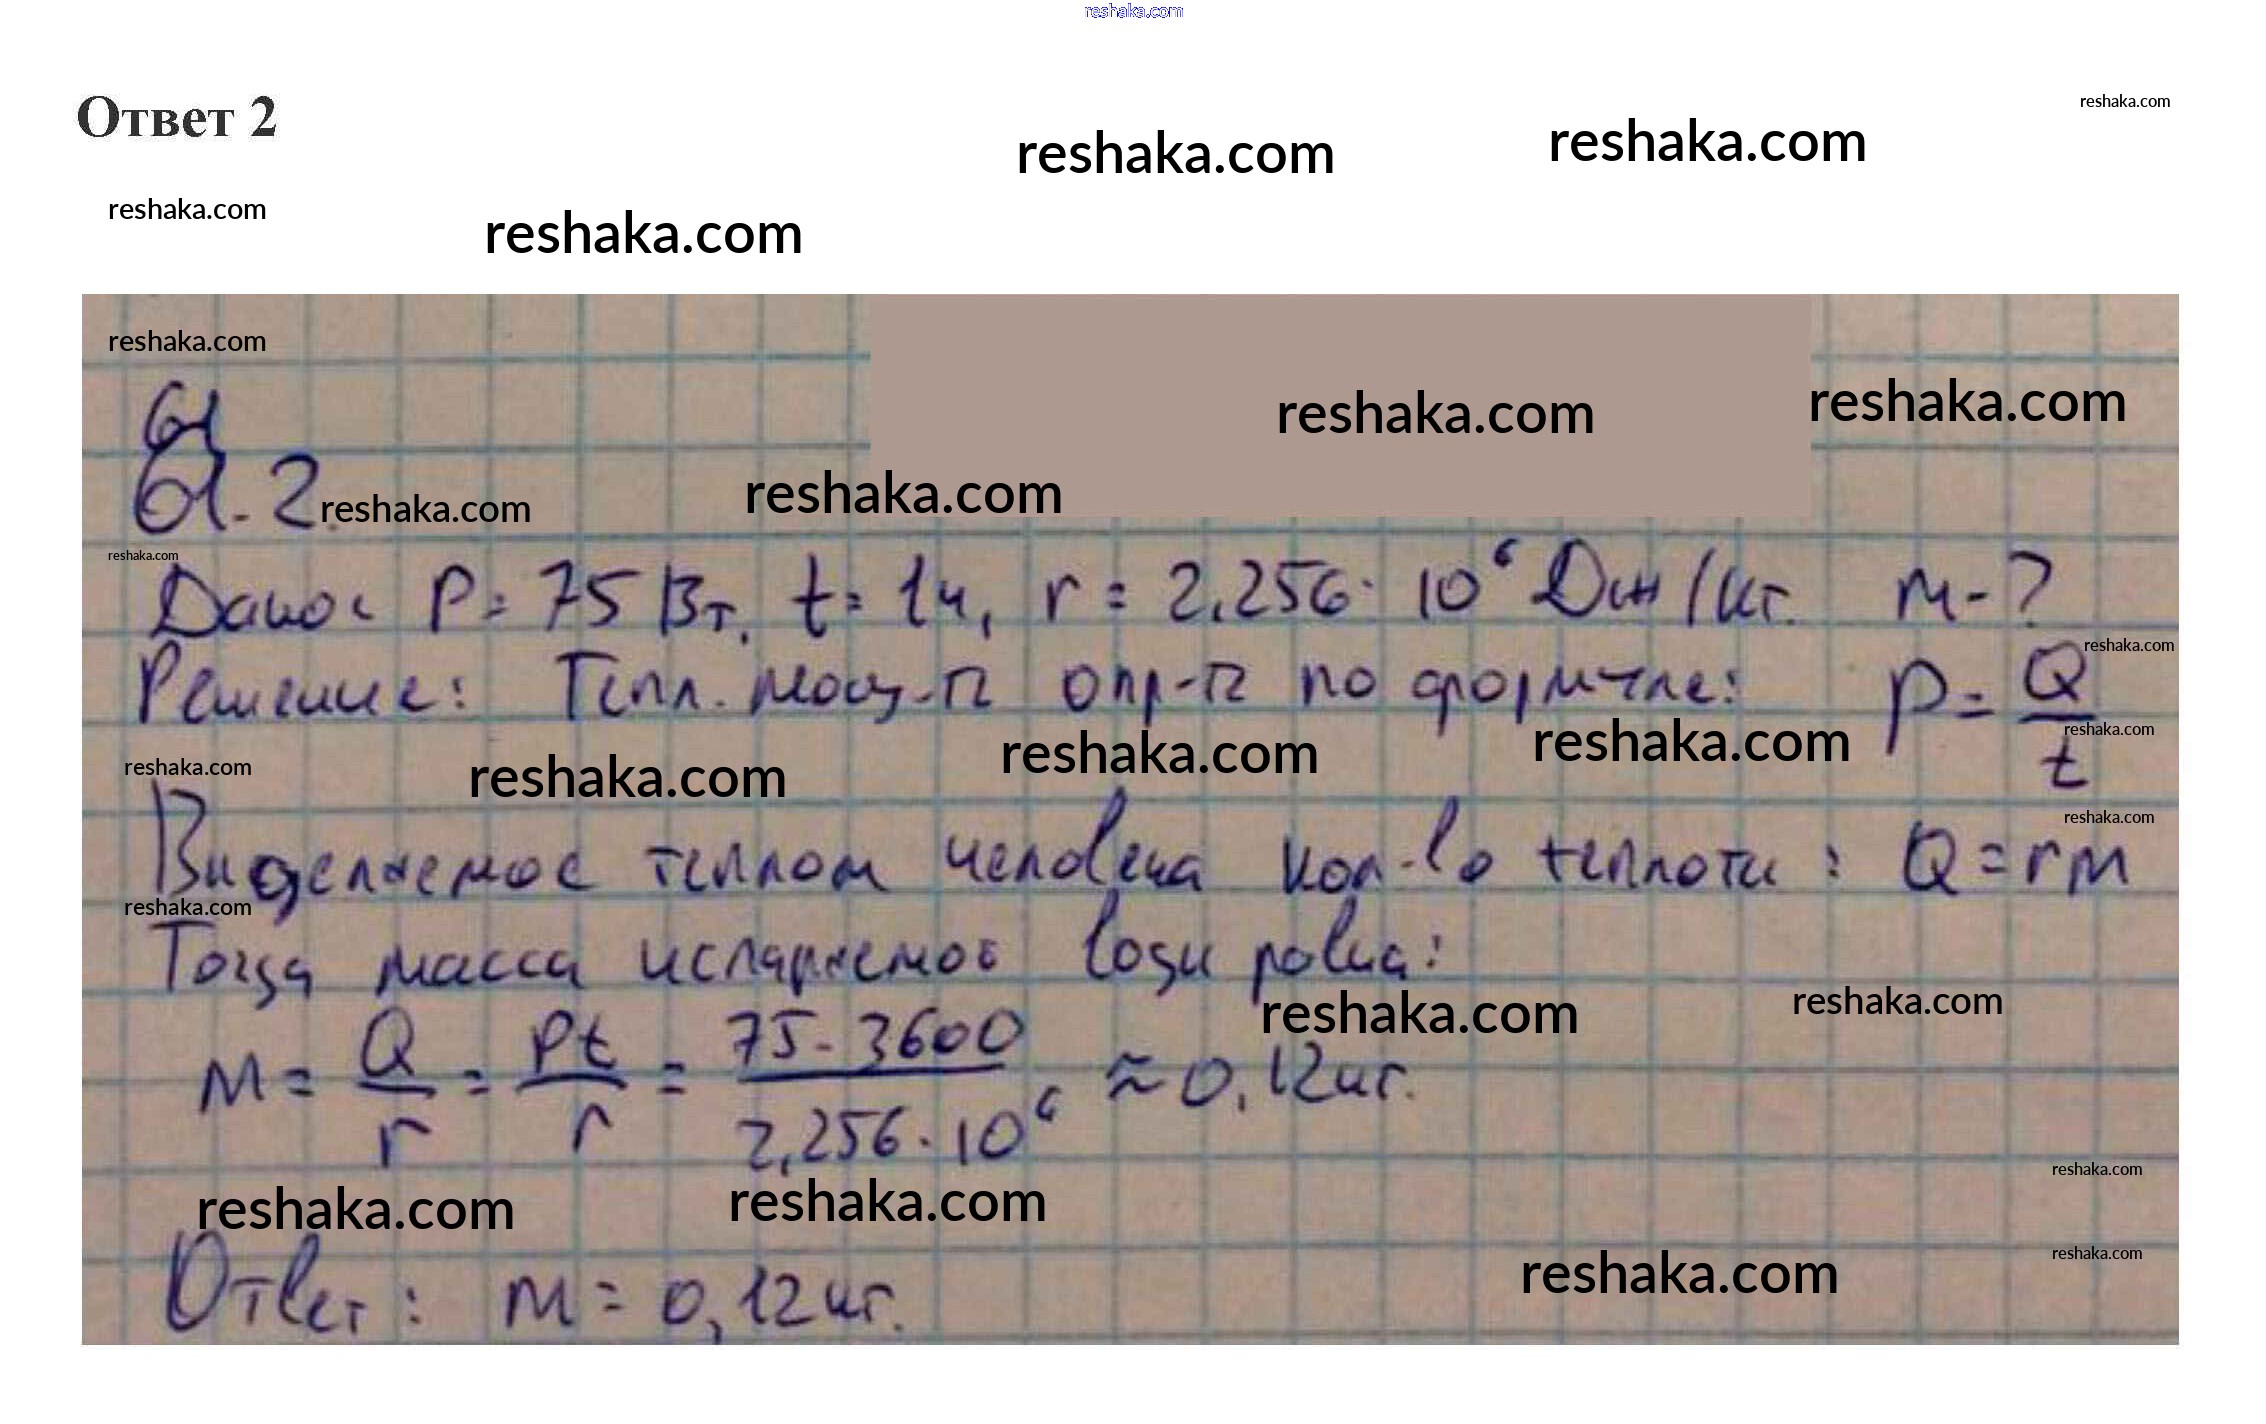 reshaka.com
Ответ 2
reshaka.com
reshaka.com
reshaka.com
reshaka.com
reshaka.com
reshaka.com
reshaka.com
reshaka.com
61
61.2.
reshaka.com
reshaka.com
reshaka.com
Дано: P = 75 Вт, t = 1ч, r = 2,256 · 10⁶ Дж/кг. m - ?
reshaka.com
Решение: Тепл. мощ-ть опр-ть по формуле: P = Q/t
reshaka.com
reshaka.com
reshaka.com
reshaka.com
reshaka.com
reshaka.com
Выделяемое теплом человека кол-во теплоты: Q = rm
reshaka.com
Тогда масса испаряемой воды равна:
reshaka.com
reshaka.com
m = Q/r = Pt/r = 75·3600/2,256·10⁶ ≈ 0,12кг.
reshaka.com
reshaka.com
reshaka.com
reshaka.com
reshaka.com
Ответ: m = 0,12кг.